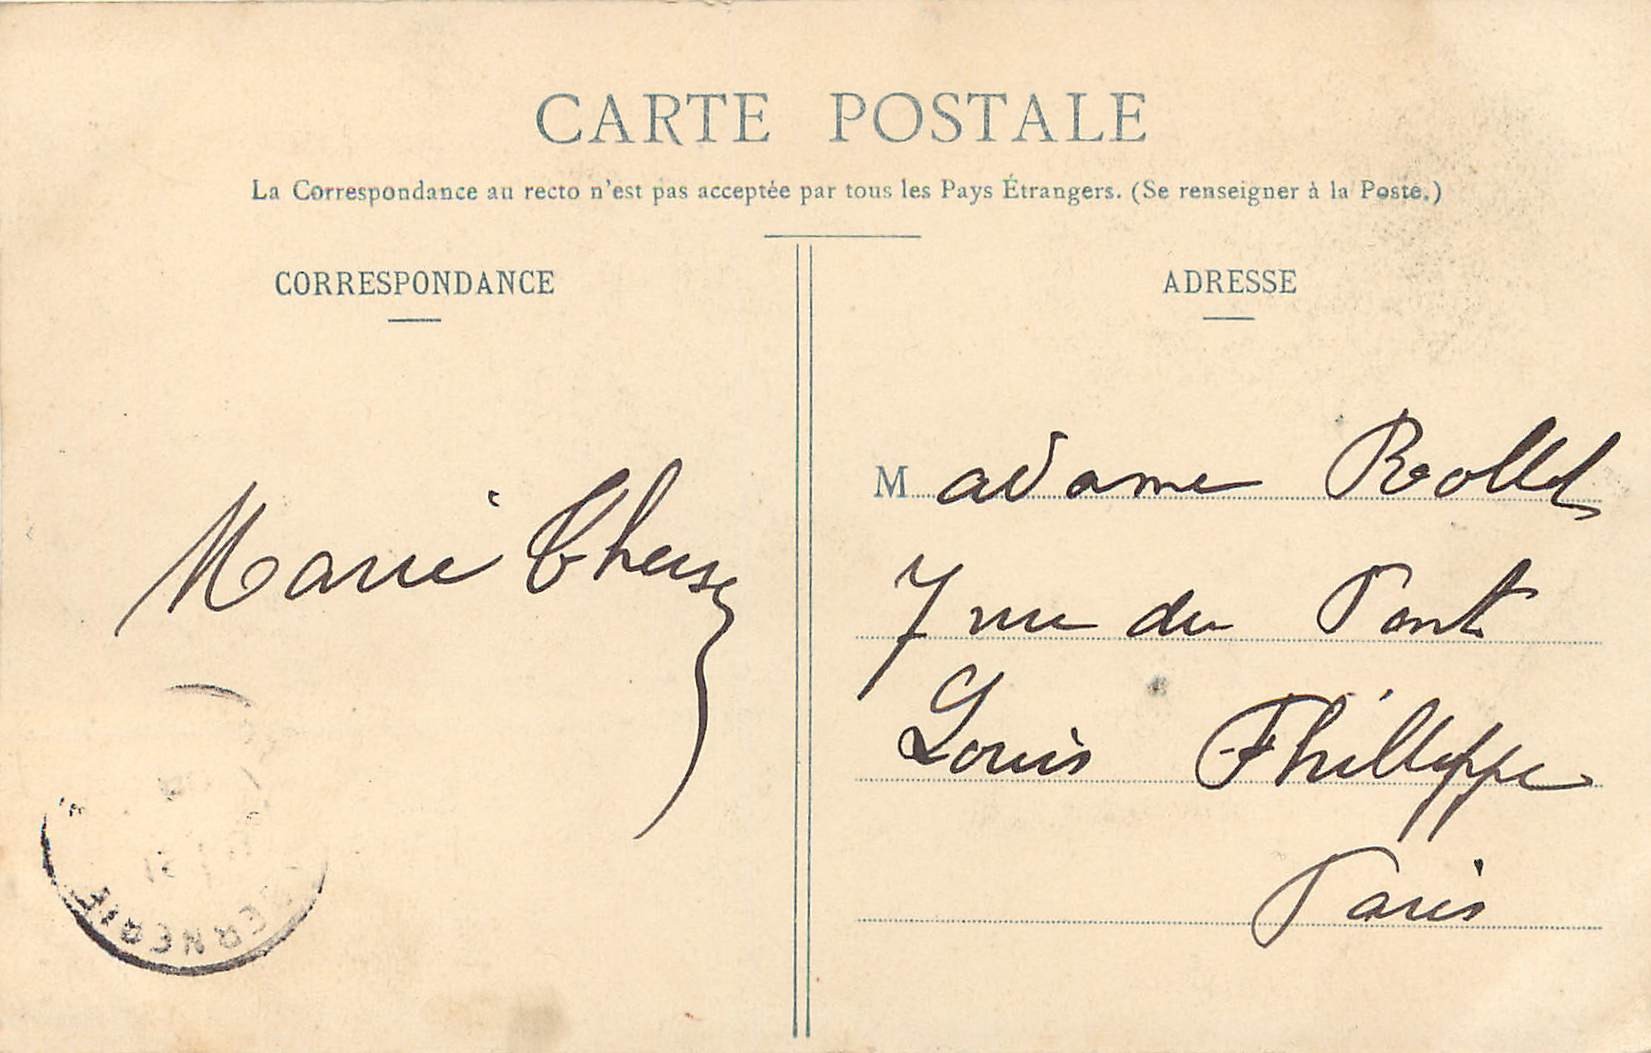 CARTE POSTALE
La Correspondance au recto n'est pas acceptée par tous les Pays Étrangers. (Se renseigner à la Poste.)
CORRESPONDANCE
ADRESSE
Marie Therese
Madame Rollet
7 rue du Pont
Louis Philippe
Paris